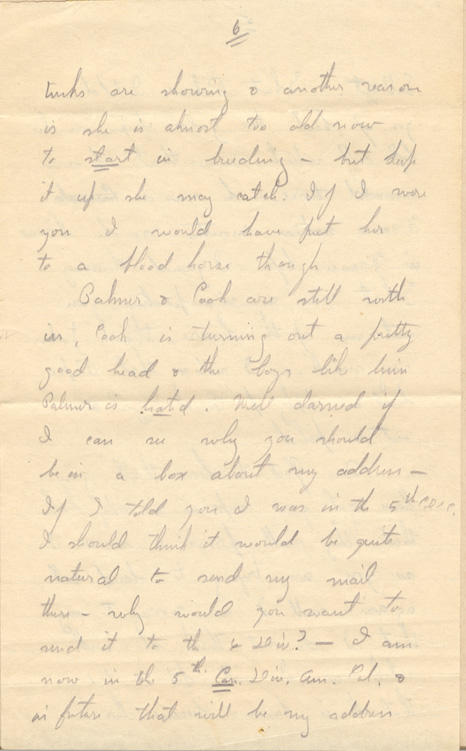 6
tucks are showing & another reason
is she is almost too old now
to start in breeding - but keep
it up she may catch. If I were
you I would have put her
to a blood horse though
Palmer & Cook are still with
us, Cook is turning out a pretty
good head & the boys like him
Palmer is hated. Well darned if
I can see why you should
be in a box about my address -
If I told you I was in the 5th
I should think it would be quite
natural to send my mail
there - why would you want to
send it to the 2 Div? - I am
now in the 5th Can. Div. Am. Col. &
in future that will be my address